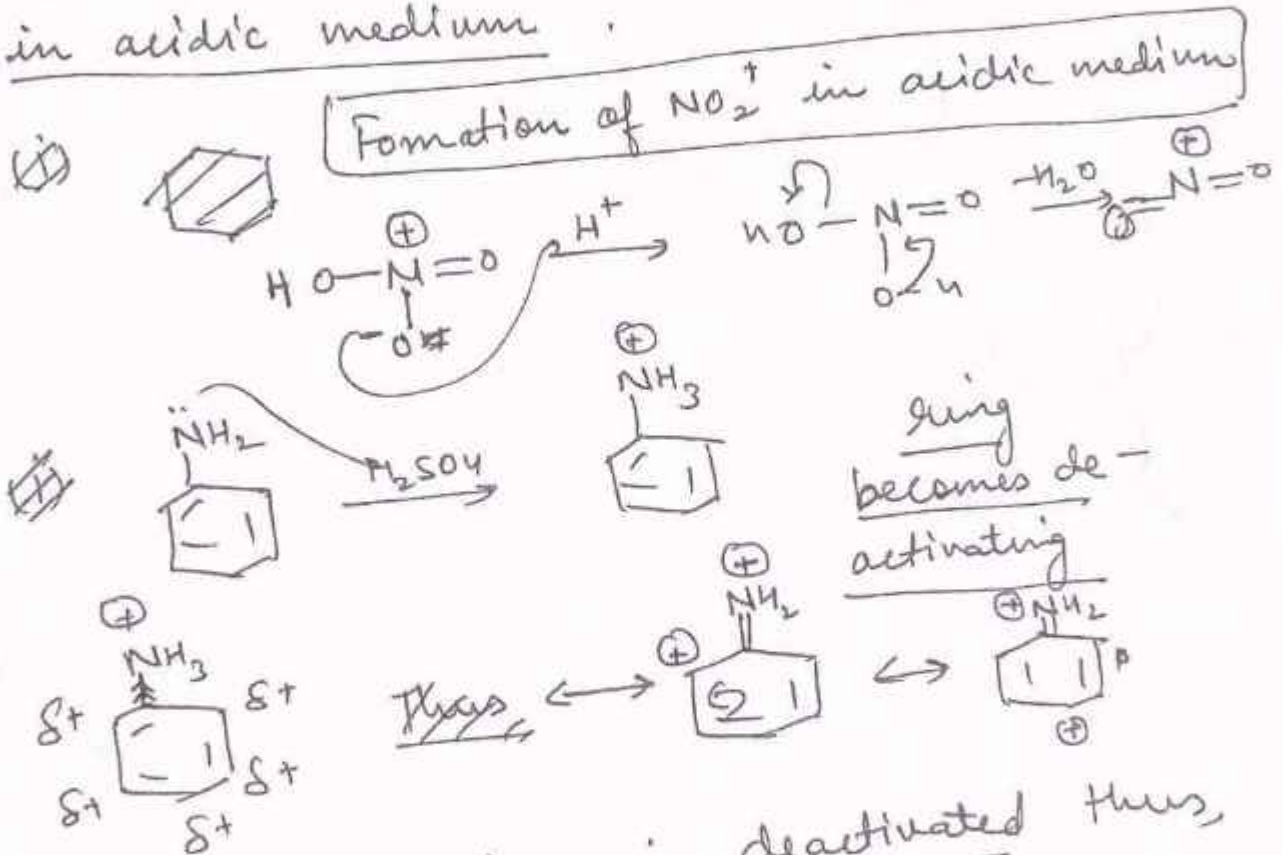 in acidic medium .
Fomation of NO2+ in acidic medium
H O—N=O H+ HO—N=O -H2O N=O
⊕ ⊕
-O O-H
NH2 H2SO4 NH3 ring
⊕ becomes de-
activating
⊕ ⊕ ⊕NH2
NH3 NH2
δ+ δ+ Thus ⊕
δ+ δ+ ⊕
δ+
deactivated thus,